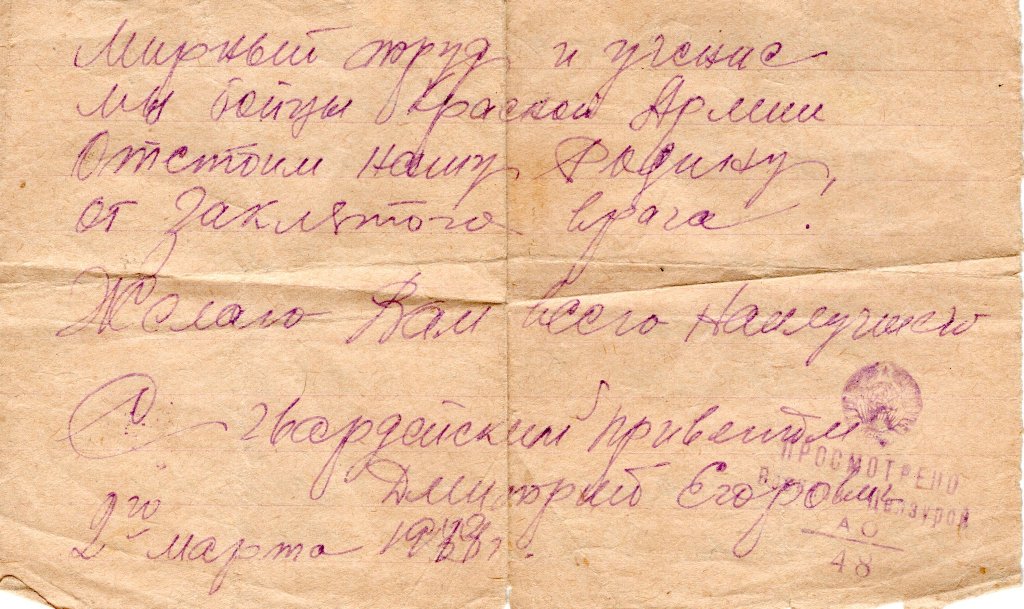 Мирный труд и учение
мы бойцы Красной Армии
Отстоим нашу Родину,
от заклятого врага.
Желаю Вам всего Наилучшего
С гвардейским приветом
Дмитрий Егорович
2го марта
ПРОСМОТРЕНО
Военной Цензурой
48